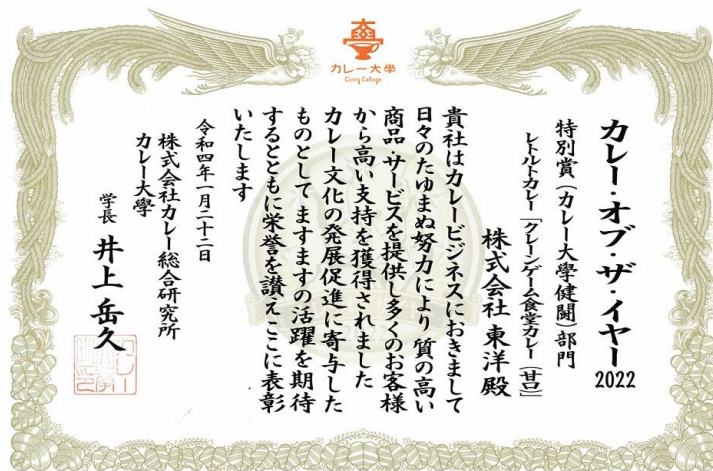 カレー大學
Curry College
カレー・オブ・ザ・イヤー2022
特別賞(カレー大學健闘)部門
レトルトカレー「クレーンゲーム食堂カレー(甘口)」
株式会社 東洋殿
貴社はカレービジネスにおきまして
日々のたゆまぬ努力により 質の高い
商品 サービスを提供し多くのお客様
から高い支持を獲得されました
カレー文化の発展促進に寄与した
ものとして ますますの活躍を期待
するとともに栄誉を讃えここに表彰
いたします
令和四年一月二十二日
株式会社カレー総合研究所
カレー大學
学長 井上 岳久